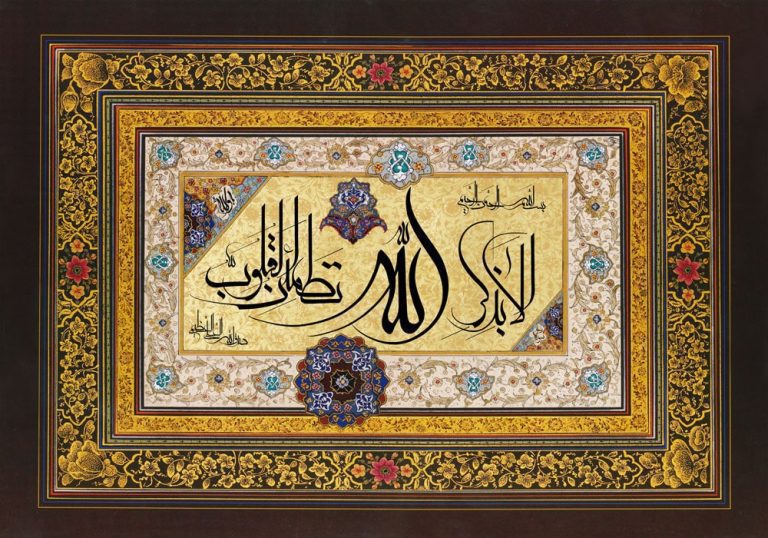 بسم الله الرحمن الرحيم
الا بذكر الله تطمئن القلوب
صدق الله العلي العظيم